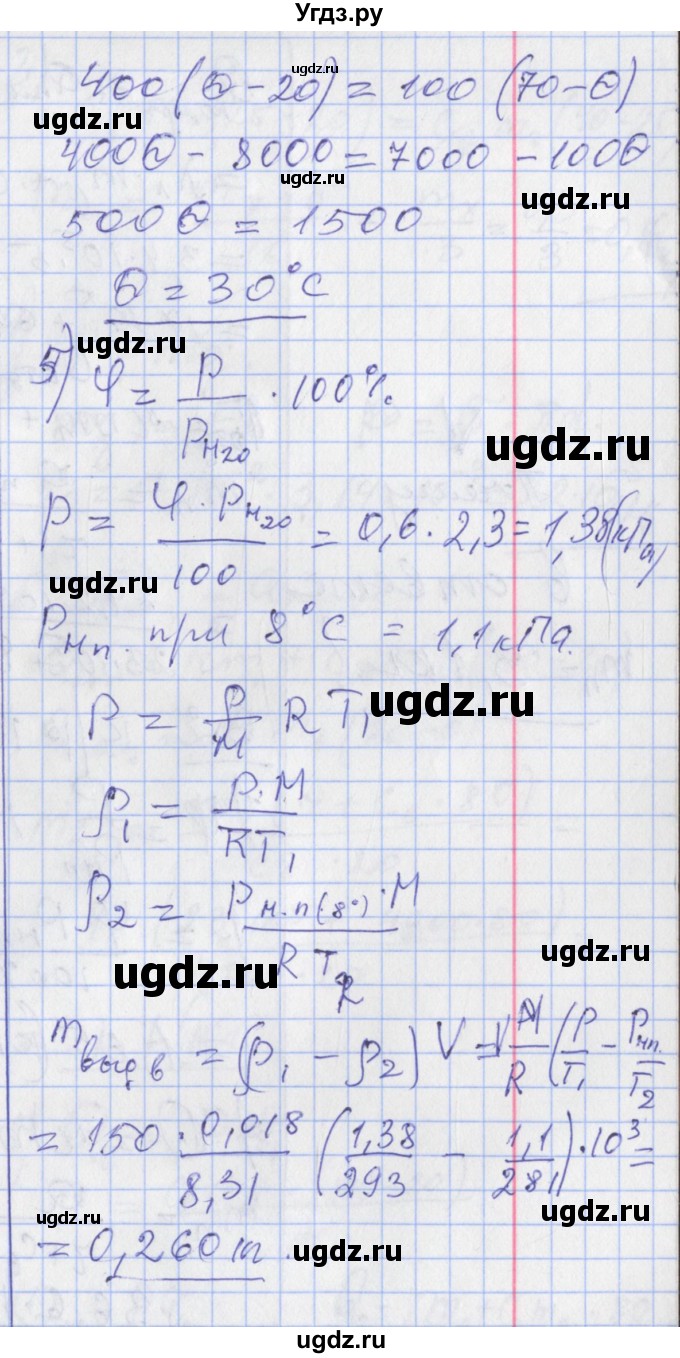 Угдз.ру
400(Θ - 20) = 100 (70 - Θ)
ugdz.ru
ugdz.ru
400Θ - 8000 = 7000 - 100Θ
500Θ = 1500
Θ = 30°C
ugdz.ru
5) φ = P / Pн20 · 100%
ugdz.ru
P = φ · Pн20 / 100 = 0,6 · 2,3 = 1,38 (кПа)
ugdz.ru
Pнп. при 8°C = 1,1 кПа.
ugdz.ru
P = ρ/M R T1
ρ1 = P·M / RT1
ρ2 = Pн.п(8°)·M / RT2
ugdz.ru
ugdz.ru
mвыд в = (ρ1 - ρ2) V = V M/R (P/T1 - Pнп./T2)
= 150 · 0,018/8,31 (1,38/293 - 1,1/281) · 10³ =
ugdz.ru
ugdz.ru
= 0,260 кг.
ugdz.ru
ugdz.ru